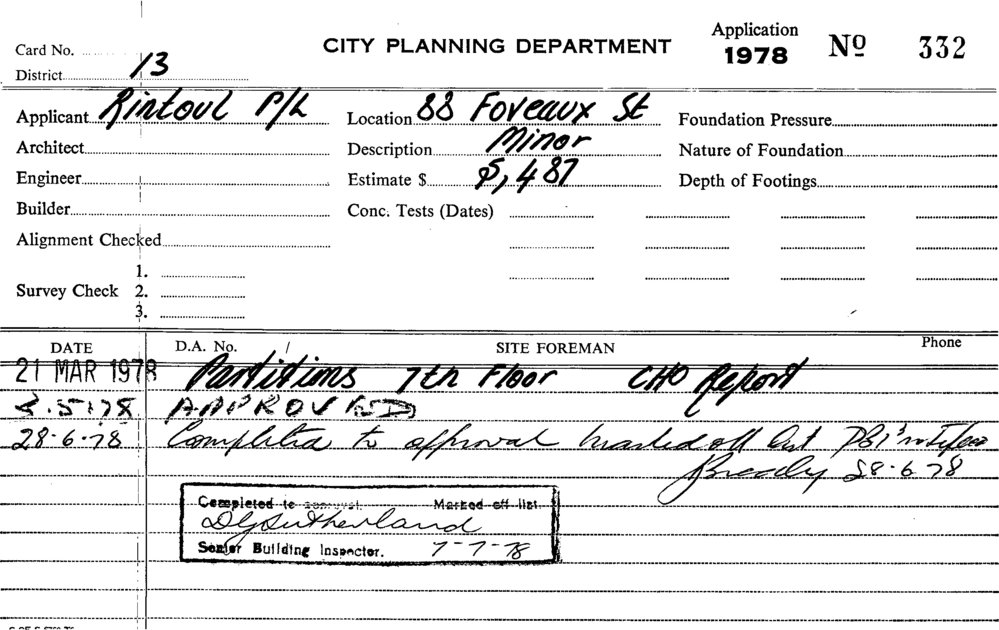 Card No.
CITY PLANNING DEPARTMENT
Application
1978 Nº 332
District 13
Applicant Rintoul P/L Location 88 Foveaux St Foundation Pressure
Architect Description Minor Nature of Foundation
Engineer Estimate $ Depth of Footings
Builder Conc. Tests (Dates)
Alignment Checked
1.
Survey Check 2.
3.
DATE D.A. No. / SITE FOREMAN Phone
21 MAR 1978 Partitions 7th Floor CHO Report
3.5.78 APPROVED
28.6.78 Completed to approval marked off list
Bready 28.6.78
Completed to approval. Marked off list.
DG Sutherland
Senior Building Inspector. 7-7-78